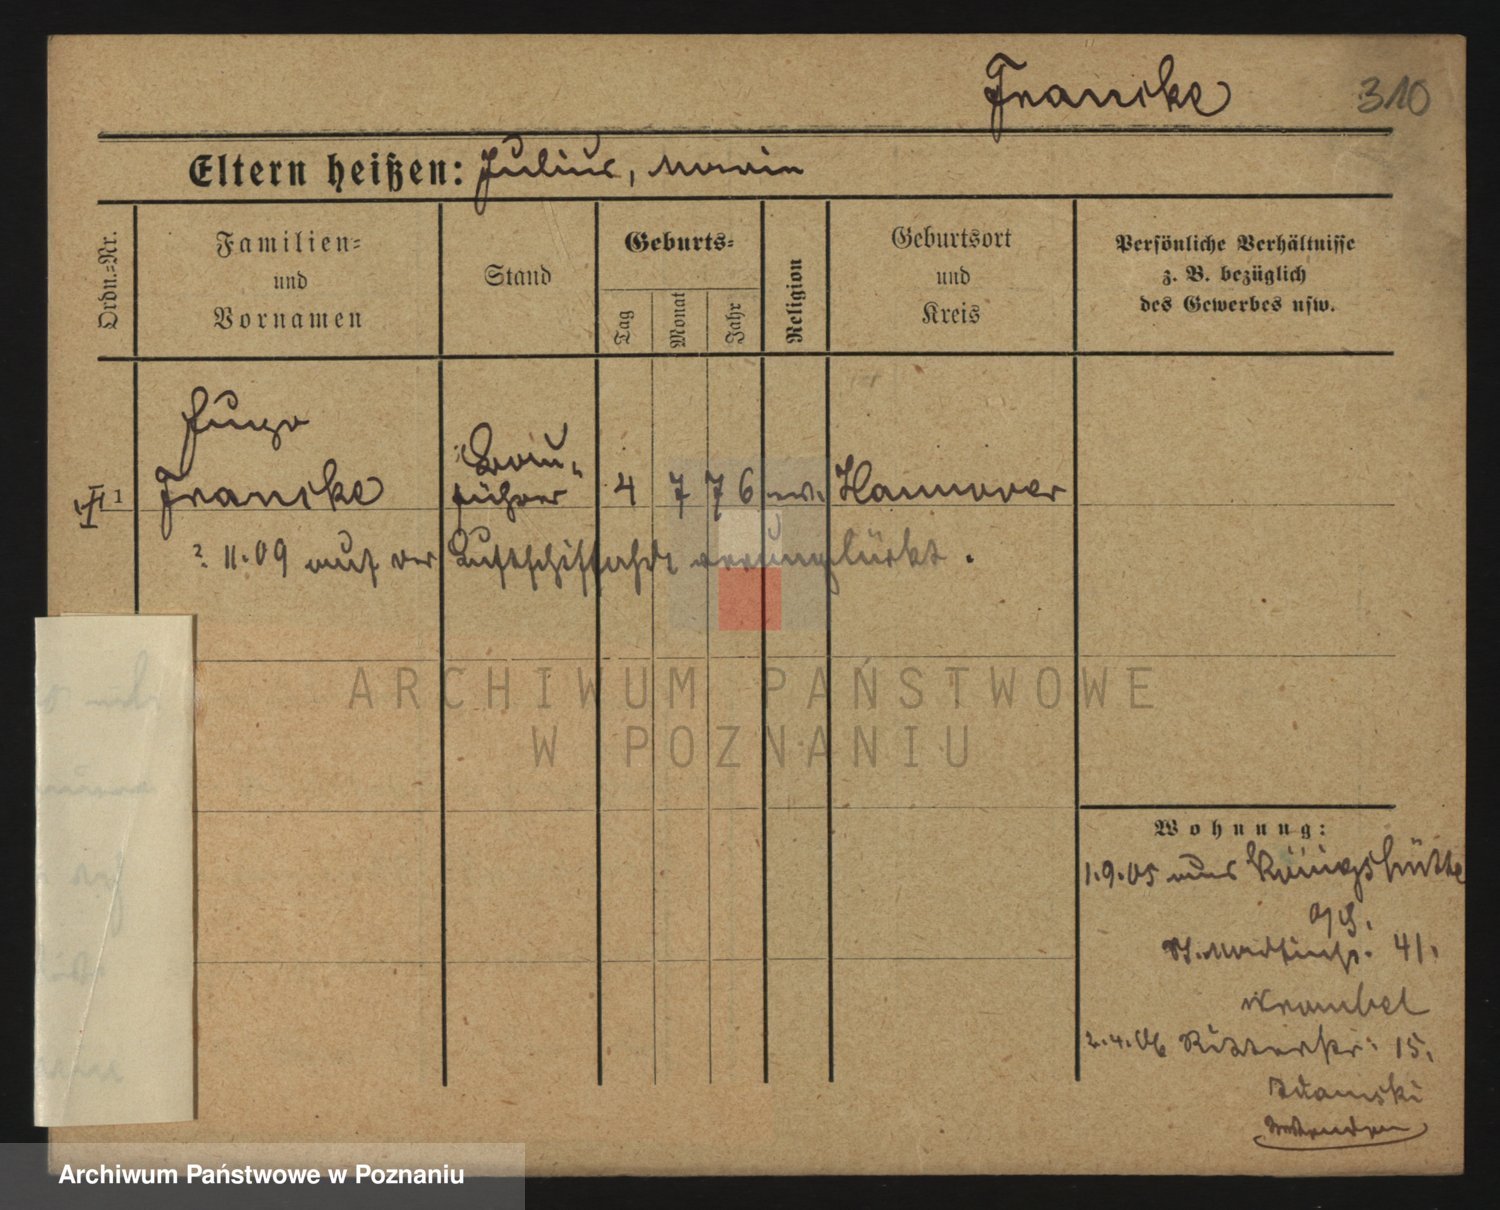 Francke 310
Eltern heißen: Julius, Marie
Ordn.-Nr.
Familien-
und
Vornamen
Stand
Geburts-
Tag
Monat
Jahr
Religion
Geburtsort
und
Kreis
Persönliche Verhältnisse
z. B. bezüglich
des Gewerbes usw.
Hugo
Bau-
1 Francke führer 4 7 76 ev. Hannover
? 11.09 auf der Luftschiffahrt verunglückt.
ARCHIWUM PAŃSTWOWE
W POZNANIU
Wohnung:
1.9.05 aus Königshütte
O/S.
St. Martinstr. 41.
2.4.06 Ritterstr. 15.
Adamski
Archiwum Państwowe w Poznaniu